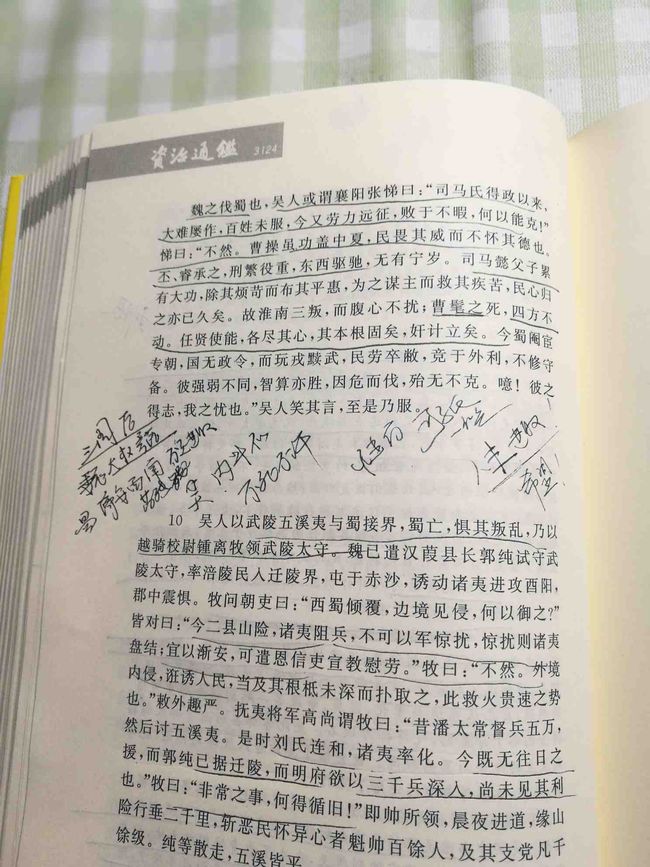 資治通鑑 3124
魏之伐蜀也，吴人或谓襄阳张悌曰：“司马氏得政以来、
大难屡作，百姓未服，今又劳力远征，败于不暇，何以能克！”
悌曰：“不然。曹操虽功盖中夏，民畏其威而不怀其德也。
丕、睿承之，刑繁役重，东西驱驰，无有宁岁。司马懿父子累
有大功，除其烦苛而布其平惠，为之谋主而救其疾苦，民心归
之亦已久矣。故淮南三叛，而腹心不扰；曹髦之死，四方不
动。任贤使能，各尽其心，其本根固矣，奸计立矣。今蜀阉宦
专朝，国无政令，而玩戎黩武，民劳卒敝，竞于外利，不修守
备。彼强弱不同，智算亦胜，因危而伐，殆无不克。噫！彼之
得志，我之忧也。”吴人笑其言，至是乃服。
三国后
内斗不
10 吴人以武陵五溪夷与蜀接界，蜀亡，惧其叛乱，乃以
越骑校尉锺离牧领武陵太守。魏已遣汉葭县长郭纯试守武
陵太守，率涪陵民入迁陵界，屯于赤沙，诱动诸夷进攻酉阳，
郡中震惧。牧问朝吏曰：“西蜀倾覆，边境见侵，何以御之？”
皆对曰：“今二县山险，诸夷阻兵，不可以军惊扰，惊扰则诸夷
盘结；宜以渐安，可遣恩信吏宣教慰劳。”牧曰：“不然。外境
内侵，诳诱人民，当及其根柢未深而扑取之，此救火贵速之势
也。”敕外趣严。抚夷将军高尚谓牧曰：“昔潘太常督兵五万，
然后讨五溪夷。是时刘氏连和，诸夷率化。今既无往日之
援，而郭纯已据迁陵，而明府欲以三千兵深入，尚未见其利
也。”牧曰：“非常之事，何得循旧！”即帅所领，晨夜进道，缘山
险行垂二千里，斩恶民怀异心者魁帅百馀人，及其支党凡千
馀级。纯等散走，五溪皆平。